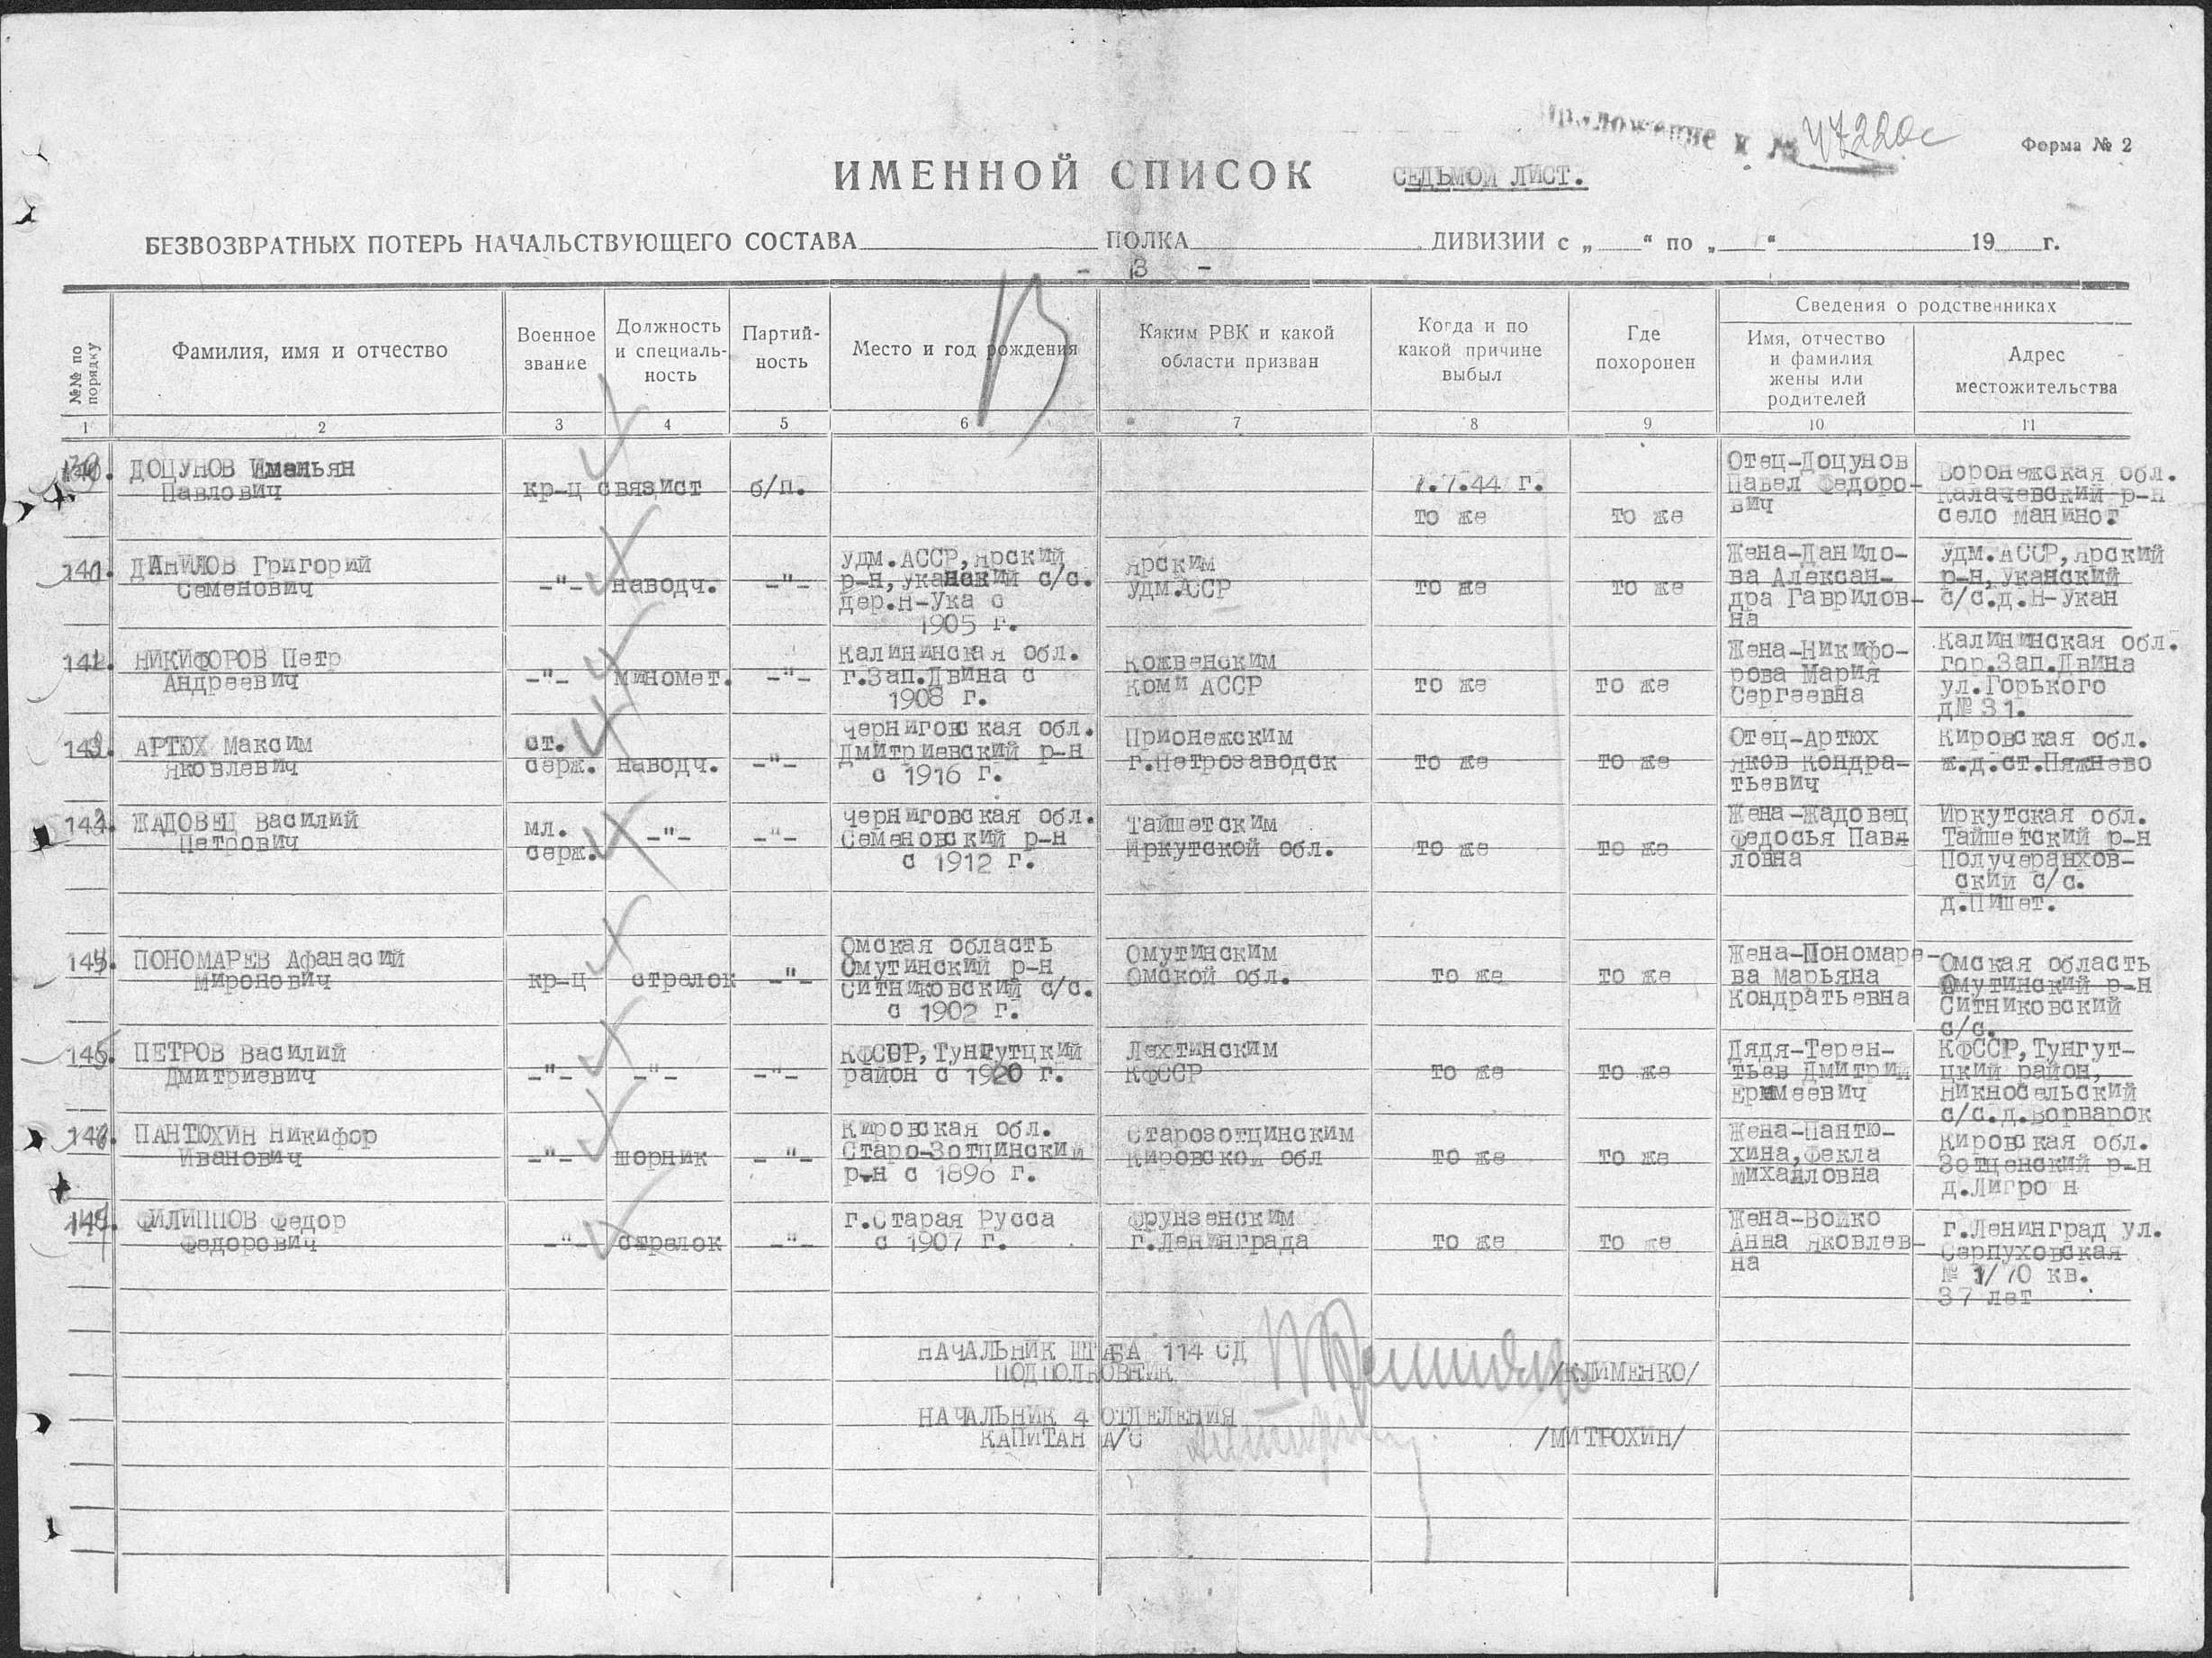 Приложение к № 47220с
Форма № 2
ИМЕННОЙ СПИСОК СЕДЬМОЙ ЛИСТ.
БЕЗВОЗВРАТНЫХ ПОТЕРЬ НАЧАЛЬСТВУЮЩЕГО СОСТАВА ПОЛКА ДИВИЗИИ с „ “ по „ “ 19 г.
- 13 -
№№ по порядку
Фамилия, имя и отчество
Военное
звание
Должность
и специаль-
ность
Партий-
ность
Место и год рождения
Каким РВК и какой
области призван
Когда и по
какой причине
выбыл
Где
похоронен
Сведения о родственниках
Имя, отчество
и фамилия
жены или
родителей
Адрес
местожительства
1 2 3 4 5 6 7 8 9 10 11
ДОЦУНОВ Имельян
Павлович
кр-ц связист б/п.
7.7.44 г.
то же то же
Отец-Доцунов
Павел Федоро-
вич
Воронежская обл.
Калачевский р-н
село Манино.
ДАНИЛОВ Григорий
Семенович
-"- наводч. -"-
Удм.АССР,Ярский
р-н,Уканский с/с.
дер.Н-Ука с
1905 г.
Ярским
Удм.АССР
то же то же
Жена-Данило-
ва Алексан-
дра Гаврилов-
на
Удм.АССР,Ярский
р-н,Уканский
с/с.д.Н-Укан
НИКИФОРОВ Петр
Андреевич
-"- миномет. -"-
Калининская обл.
г.Зап.Двина с
1908 г.
Кожвенским
Коми АССР
то же то же
Жена-Никифо-
рова Мария
Сергеевна
Калининская обл.
гор.Зап.Двина
ул.Горького
д№31.
АРТЮХ Максим
Яковлевич
ст.
серж. наводч. -"-
Черниговская обл.
Дмитриевский р-н
с 1916 г.
Прионежским
г.Петрозаводск
то же то же
Отец-Артюх
Яков Кондра-
тьевич
Кировская обл.
ж.д.ст.Пяжнево
ЖАДОВЕЦ Василий
Петрович
мл.
серж. -"- -"-
Черниговская обл.
Семеновский р-н
с 1912 г.
Тайшетским
Иркутской обл.
то же то же
Жена-Жадовец
Федосья Павл
ловна
Иркутская обл.
Тайшетский р-н
Получеранхов-
ский с/с.
д.Пишет.
ПОНОМАРЕВ Афанасий
Миронович
кр-ц стрелок -"-
Омская область
Омутинский р-н
Ситниковский с/с.
с 1902 г.
Омутинским
Омской обл.
то же то же
Жена-Пономаре-
ва Марьяна
Кондратьевна
Омская область
Омутинский р-н
Ситниковский
с/с.
ПЕТРОВ Василий
Дмитриевич
-"- -"- -"-
КФССР,Тунгутцкий
район с 1920 г.
Лехтинским
КФССР
то же то же
Дядя-Терен-
тьев Дмитрий
Еремеевич
КФССР,Тунгут-
цкий район,
Никносельский
с/с.д.Ворварок
ПАНТЮХИН Никифор
Иванович
-"- шорник -"-
Кировская обл.
Старо-Зотцинский
р-н с 1896 г.
Старозотцинским
Кировской обл
то же то же
Жена-Пантю-
хина,Фекла
Михайловна
Кировская обл.
Зотценский р-н
д.Лигро н
ФИЛИППОВ Федор
Федорович
-"- стрелок -"-
г.Старая Русса
с 1907 г.
Фрунзенским
г.Ленинграда
то же то же
Жена-Войко
Анна Яковлев-
на
г.Ленинград ул.
Серпуховская
№ 1/70 кв.
37 лет
НАЧАЛЬНИК ШТАБА 114 СД
ПОДПОЛКОВНИК /КЛИМЕНКО/
НАЧАЛЬНИК 4 ОТДЕЛЕНИЯ
КАПИТАН А/С /МИТРОХИН/